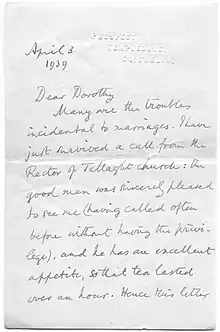 PROSPECT,
TEMPLEOGUE,
CO. DUBLIN.
April 3
1939
Dear Dorothy
Many are the troubles
incidental to marriages. I have
just survived a call from the
Rector of Tallaght church: the
good man was sincerely pleased
to see me (having called often
before without having the privi-
lege), and he has an excellent
appetite, so that tea lasted
over an hour. Hence this letter